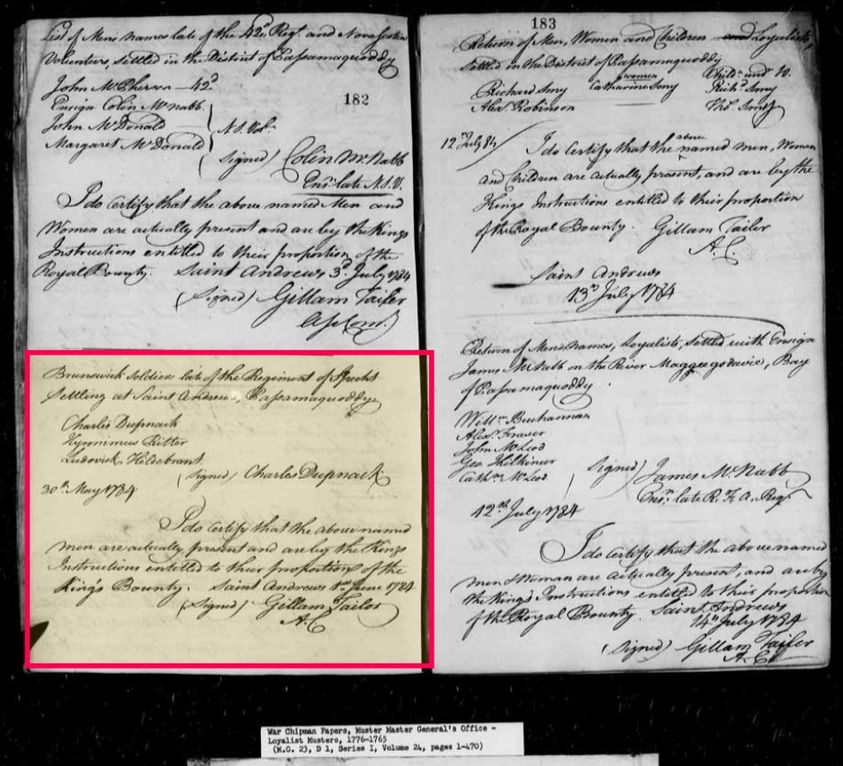 List of Mens names late of the 42d Regt. and Nova Scotia
Volunteers, settled in the District of Passamaquoddy
John McPherson — 42d
Ensign Colin McNabb
182
John McDonald
Margaret McDonald
N.S. Vol.
(Signed) Colin McNabb
Ensn. late N.S.V.
I do certify that the above named Men and
Women are actually present and are by the Kings
Instructions entitled to their proportion of the
Royal Bounty. Saint Andrews 3d July 1784
(Signed) Gillam Tailer
Brunswick soldiers late of the Regiment of Specht
Settling at Saint Andrews, Passamaquoddy
Charles Dupnack
Hyronimus Ritter
Ludovick Hildebrant
(Signed) Charles Dupnack
30th May 1784
I do certify that the above named
men are actually present and are by the Kings
Instructions entitled to their proportion of the
King's Bounty. Saint Andrews 1st June 1784
(Signed) Gillam Tailor
A.C
183
Return of Men, Women and Children and Loyalists,
settled in the District of Passamaquoddy
women
Childn. und. 10.
Richard
Catharine
Richd.
Alexr. Robinson
Thos.
12th July 84
I do Certify that the above named men, Women
and Children are actually present, and are by the
Kings Instructions entitled to their proportion
of the Royal Bounty. Gillam Tailer
A.C.
Saint Andrews
13th July 1784
Return of Mens names, Loyalists, settled with Ensign
James McNabb on the River Maggeegadavic, Bay
of Passamaquoddy.
Willm. Buchannan
Alexr. Fraser
John McLeod
Geo.
Cathn. McLeod
(Signed) James McNabb
Ensn. late R.F.A. Regt.
12th July 1784
I do certify that the above named
men & Woman are actually present, and are by
the Kings Instructions entitled to their proportion
of the Royal Bounty. Saint Andrews
14th July 1784
(Signed) Gillam Tailer
A.C.
War Chipman Papers, Muster Master General's Office -
Loyalist Musters, 1776-1785
(M.G. 23, D 1, Series I, Volume 24, pages 1-470)